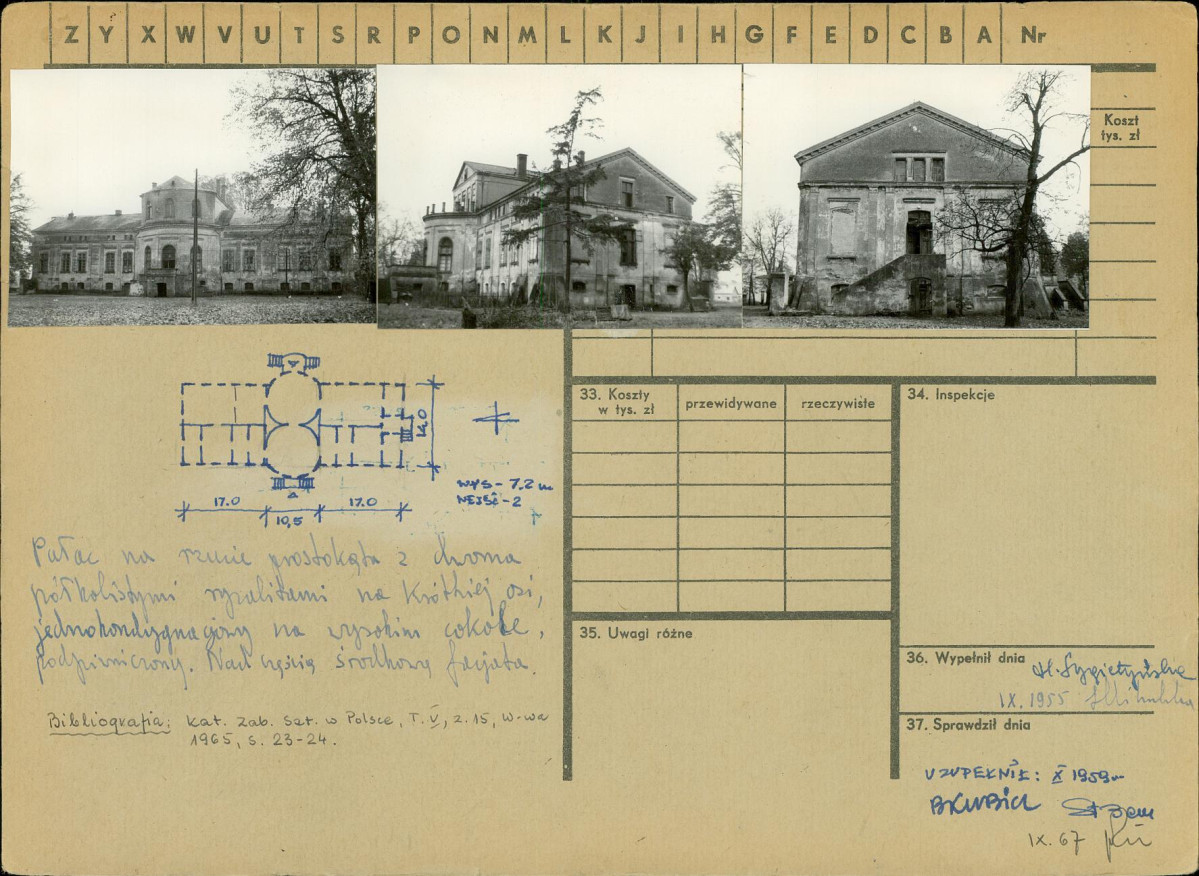 Z Y X W V U T S R P O N M L K J I H G F E D C B A Nr
Koszt
tys. zł
14,0
WYS - 7.2 m
WEJŚĆ - 2
17.0 17.0
10,5
Pałac na rzucie prostokąta z dwoma
półkolistymi ryzalitami na krótkiej osi,
jednokondygnacjowy na wysokim cokole,
podpiwniczony. Nad częścią środkową facjata.
Bibliografia: Kat. Zab. Szt. w Polsce, T. V, z. 15, W-wa
1965, s. 23-24.
33. Koszty
w tys. zł
przewidywane
rzeczywiste
34. Inspekcje
35. Uwagi różne
36. Wypełnił dnia
H. Sygietyńska
IX. 1955
37. Sprawdził dnia
UZUPEŁNIŁ: X 1959
IX. 67